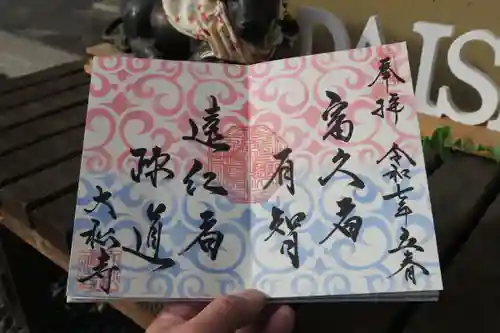 奉拝
令和七年立春
富久者
有智
遠仁者
疎道
大松寺
DAIS